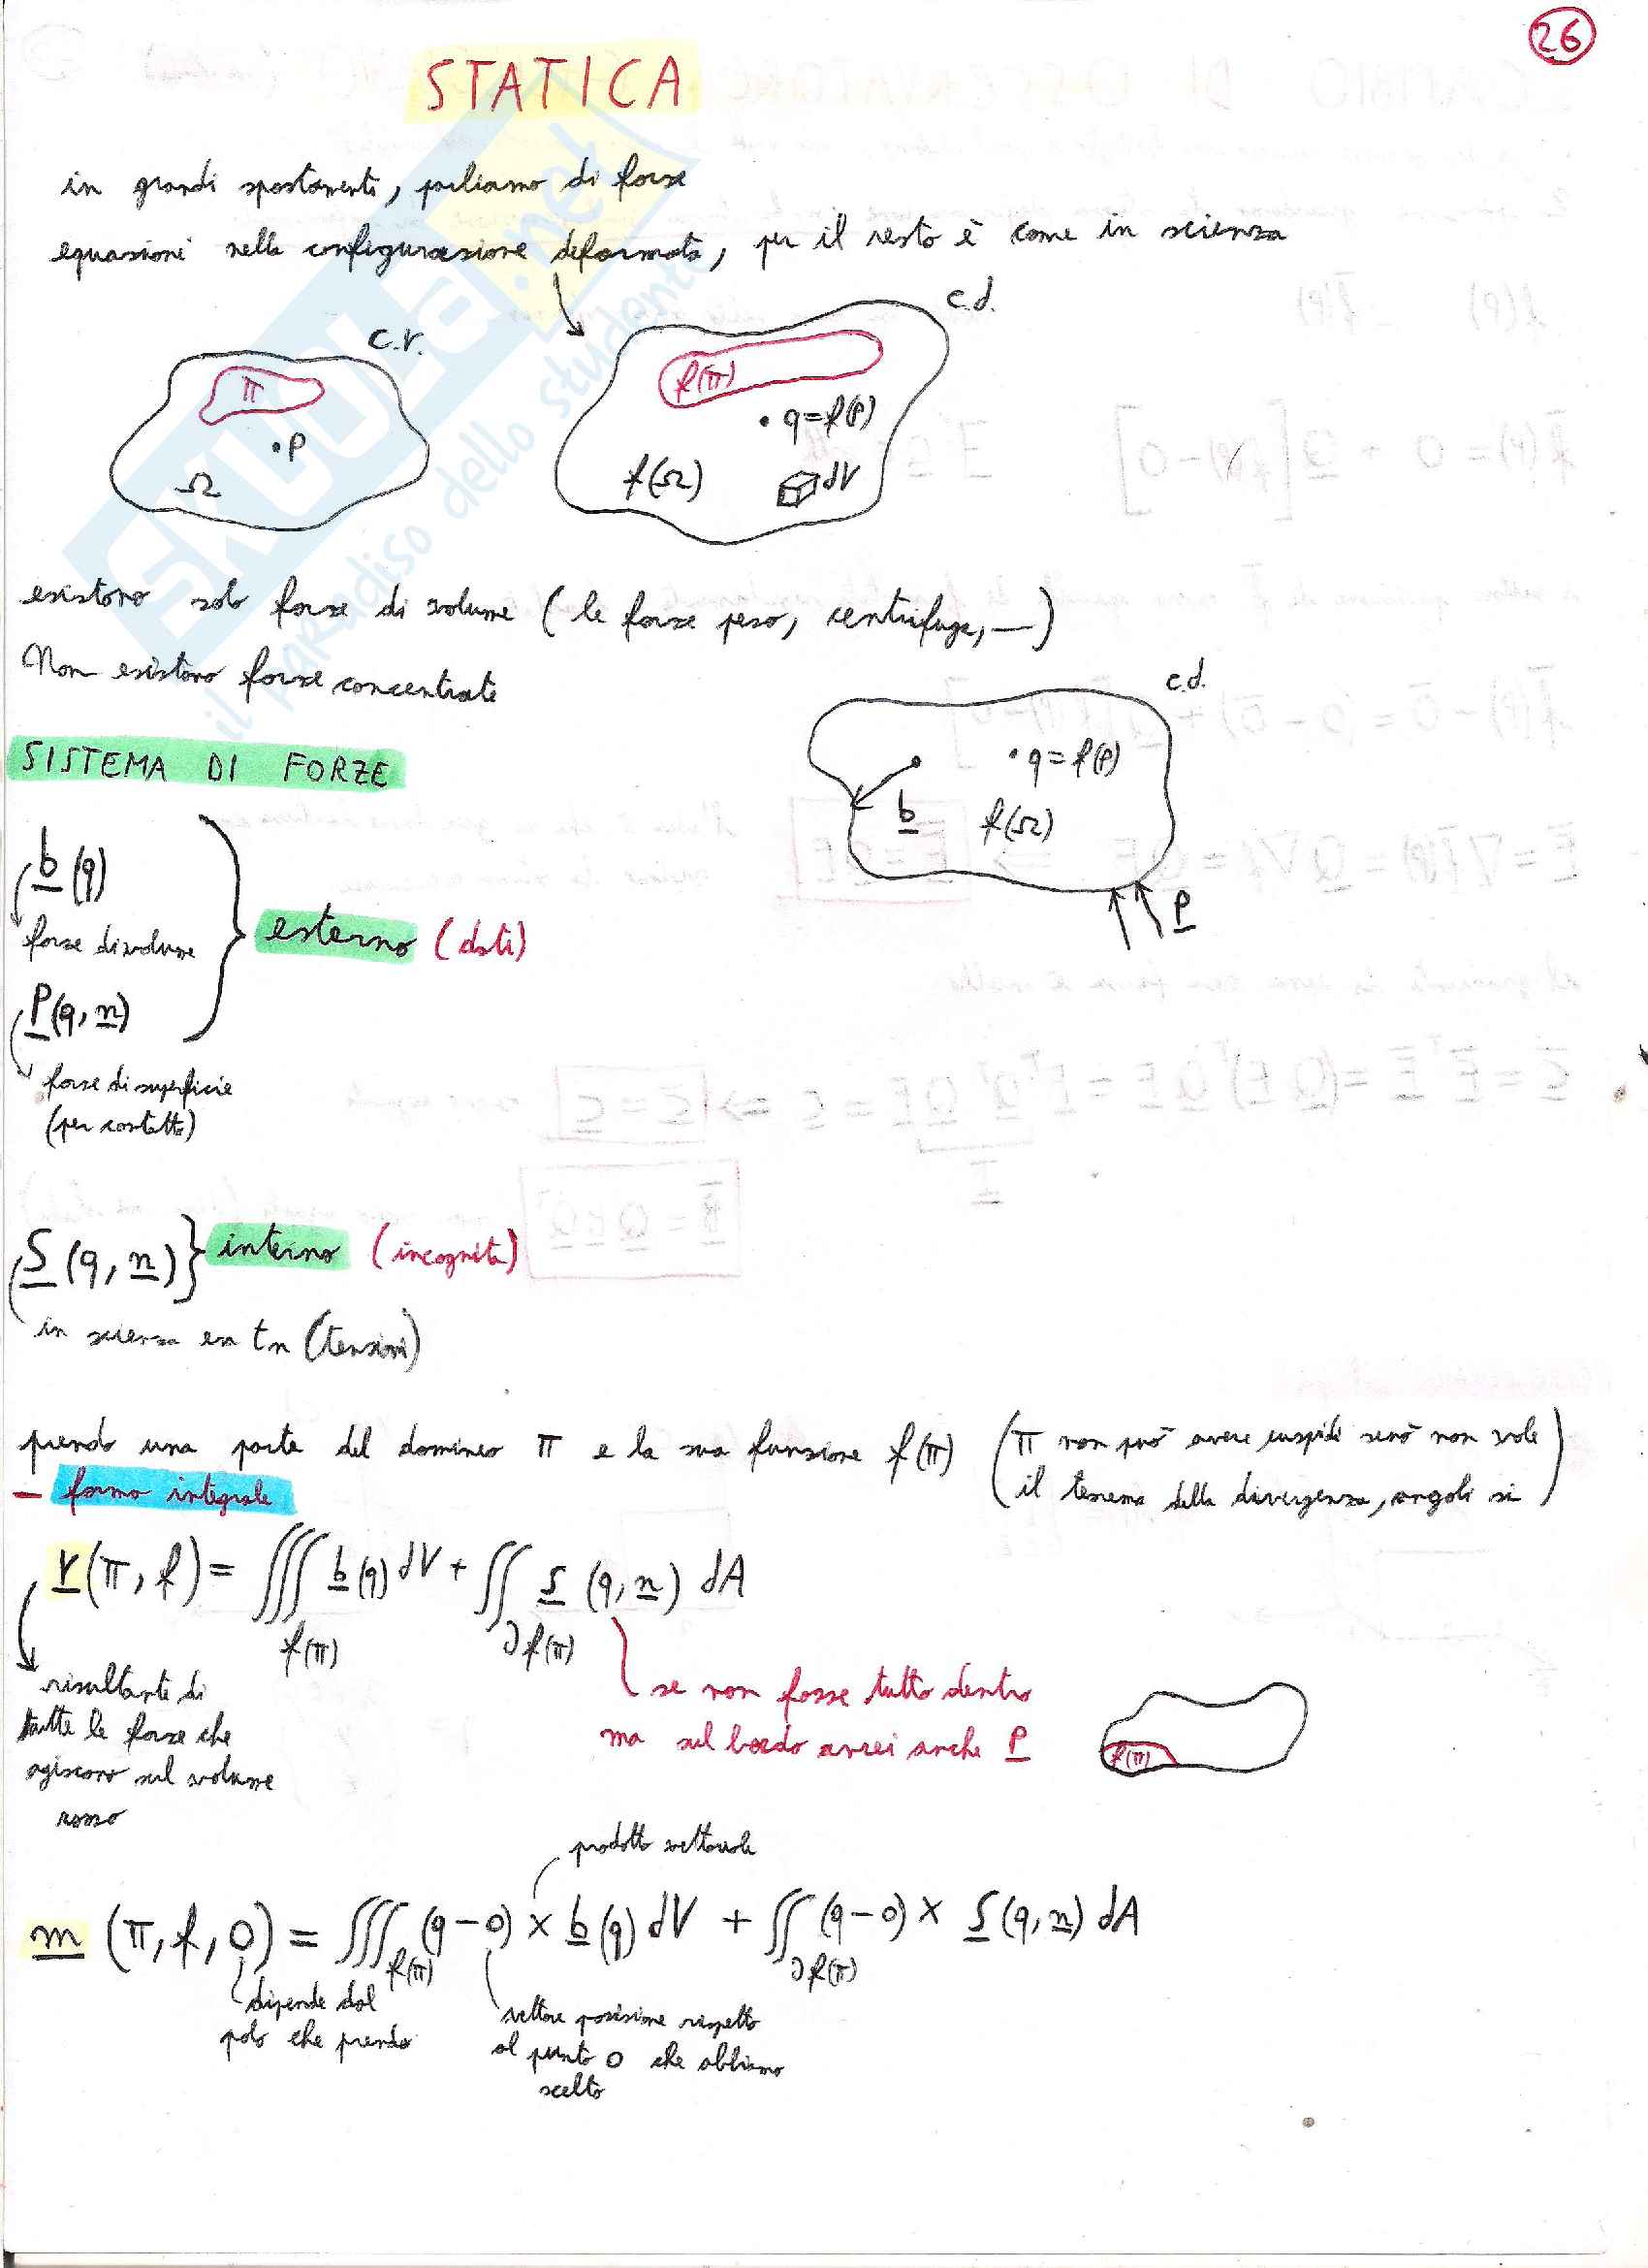 26
STATICA
in grandi spostamenti, parliamo di forze
equazioni nella configurazione deformata, per il resto è come in scienza
c.r.
c.d.
π
f(π)
• P
• q=f(P)
Ω
f(Ω)
dV
esistono solo forze di volume (le forze peso, centrifuga, —)
Non esistono forze concentrate
c.d.
SISTEMA DI FORZE
• q=f(P)
b
f(Ω)
b(q)
forze di volume
esterno (dati)
P
P(q, n)
forze di superficie
(per contatto)
S(q, n)} interno (incognita)
in scienza era tn (tensioni)
prendo una parte del dominio π e la sua funzione f(π) (π non può avere cuspidi senò non vale
il teorema della divergenza, angoli si)
– forma integrale
r(π, f) = ∭ b(q) dV + ∬ s(q, n) dA
f(π) ∂f(π)
risultante di
tutte le forze che
agiscono sul volume
rosso
se non fosse tutto dentro
ma sul bordo avrei anche P
f(π)
prodotto vettoriale
m (π, f, 0) = ∭ (q-0) × b(q) dV + ∬ (q-0) × s(q, n) dA
f(π) ∂f(π)
dipende dal
polo che prendo
vettore posizione rispetto
al punto 0 che abbiamo
scelto
SKUOLA.net
il paradiso dello studente